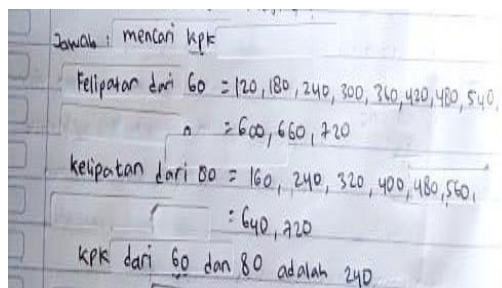 Jawab : mencari kpk
Kelipatan dari 60 = 120, 180, 240, 300, 360, 420, 480, 540,
" = 600, 660, 720
kelipatan dari 80 = 160, 240, 320, 400, 480, 560,
: 640, 720
kpk dari 60 dan 80 adalah 240